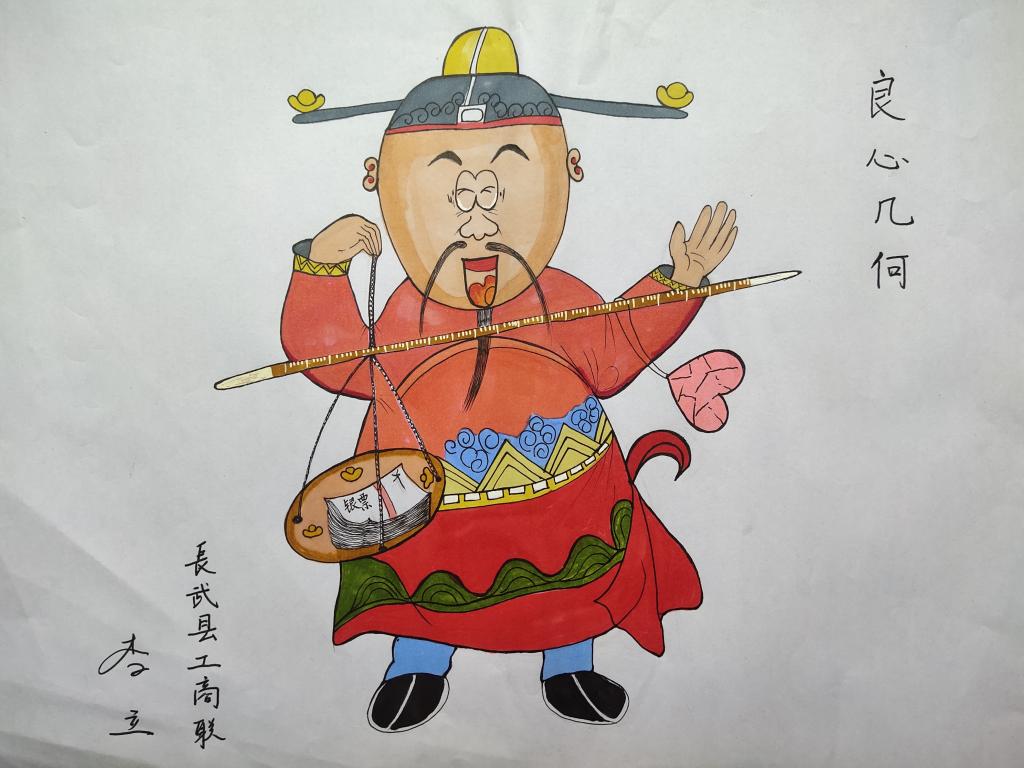 良心几何
银票
長武县工商联
李立